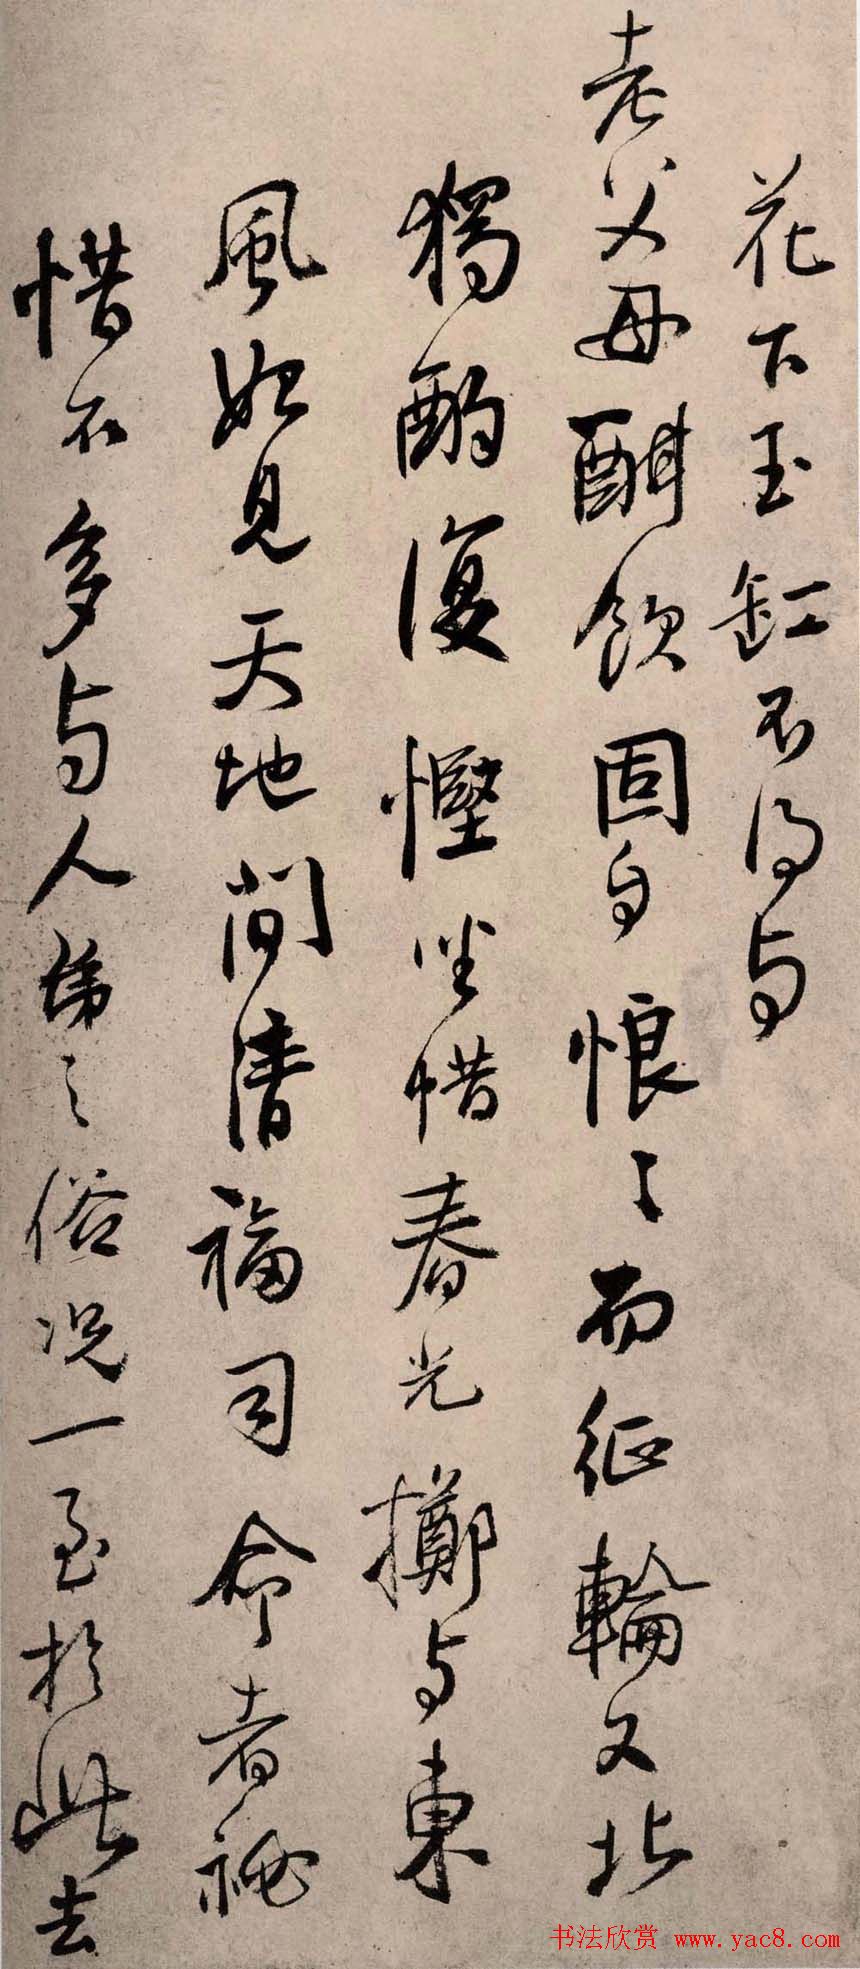 花下玉缸不得与
老父母酣飲固自恨〻而征輪又北
獨酌復慳坐惜春光擲与東
風始見天地間清福司命者祕
惜不多与人弟之俗况一至於此去
书法欣赏 www.yac8.com